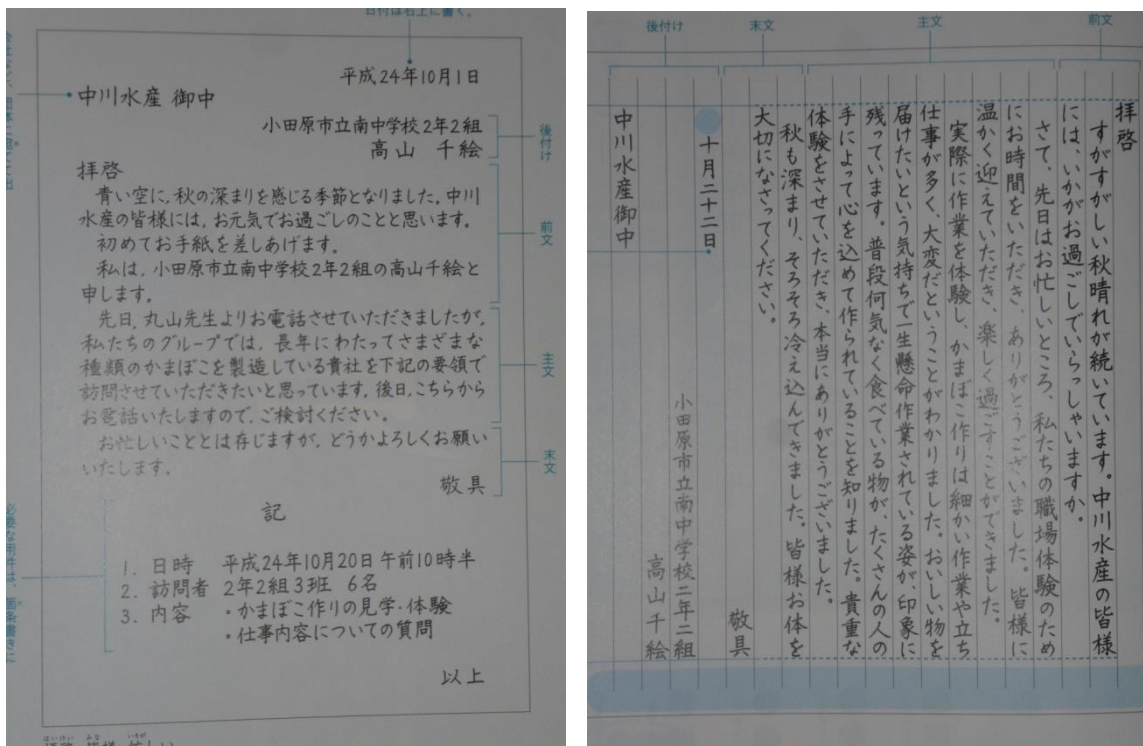 日付は右上に書く。
平成24年10月1日
中川水産 御中
小田原市立南中学校2年2組
高山 千絵
後付け
拝啓
青い空に,秋の深まりを感じる季節となりました。中川
水産の皆様には,お元気でお過ごしのことと思います。
初めてお手紙を差しあげます。
私は,小田原市立南中学校2年2組の高山千絵と
申します。
前文
先日,丸山先生よりお電話させていただきましたが,
私たちのグループでは,長年にわたってさまざまな
種類のかまぼこを製造している貴社を下記の要領で
訪問させていただきたいと思っています。後日,こちらから
お電話いたしますので,ご検討ください。
主文
お忙しいこととは存じますが,どうかよろしくお願い
いたします。
敬具
末文
記
1. 日時 平成24年10月20日 午前10時半
2. 訪問者 2年2組3班 6名
3. 内容 ・かまぼこ作りの見学・体験
・仕事内容についての質問
以上
必要な用件は,箇条書きに
前文
主文
末文
後付け
拝啓
すがすがしい秋晴れが続いています。中川水産の皆様
には、いかがお過ごしでいらっしゃいますか。
さて、先日はお忙しいところ、私たちの職場体験のため
にお時間をいただき、ありがとうございました。皆様に
温かく迎えていただき、楽しく過ごすことができました。
実際に作業を体験し、かまぼこ作りは細かい作業や立ち
仕事が多く、大変だということがわかりました。おいしい物を
届けたいという気持ちで一生懸命作業されている姿が、印象に
残っています。普段何気なく食べている物が、たくさんの人の
手によって心を込めて作られていることを知りました。貴重な
体験をさせていただき、本当にありがとうございました。
秋も深まり、そろそろ冷え込んできました。皆様お体を
大切になさってください。
敬具
十月二十二日
小田原市立南中学校二年二組
高山千絵
中川水産御中